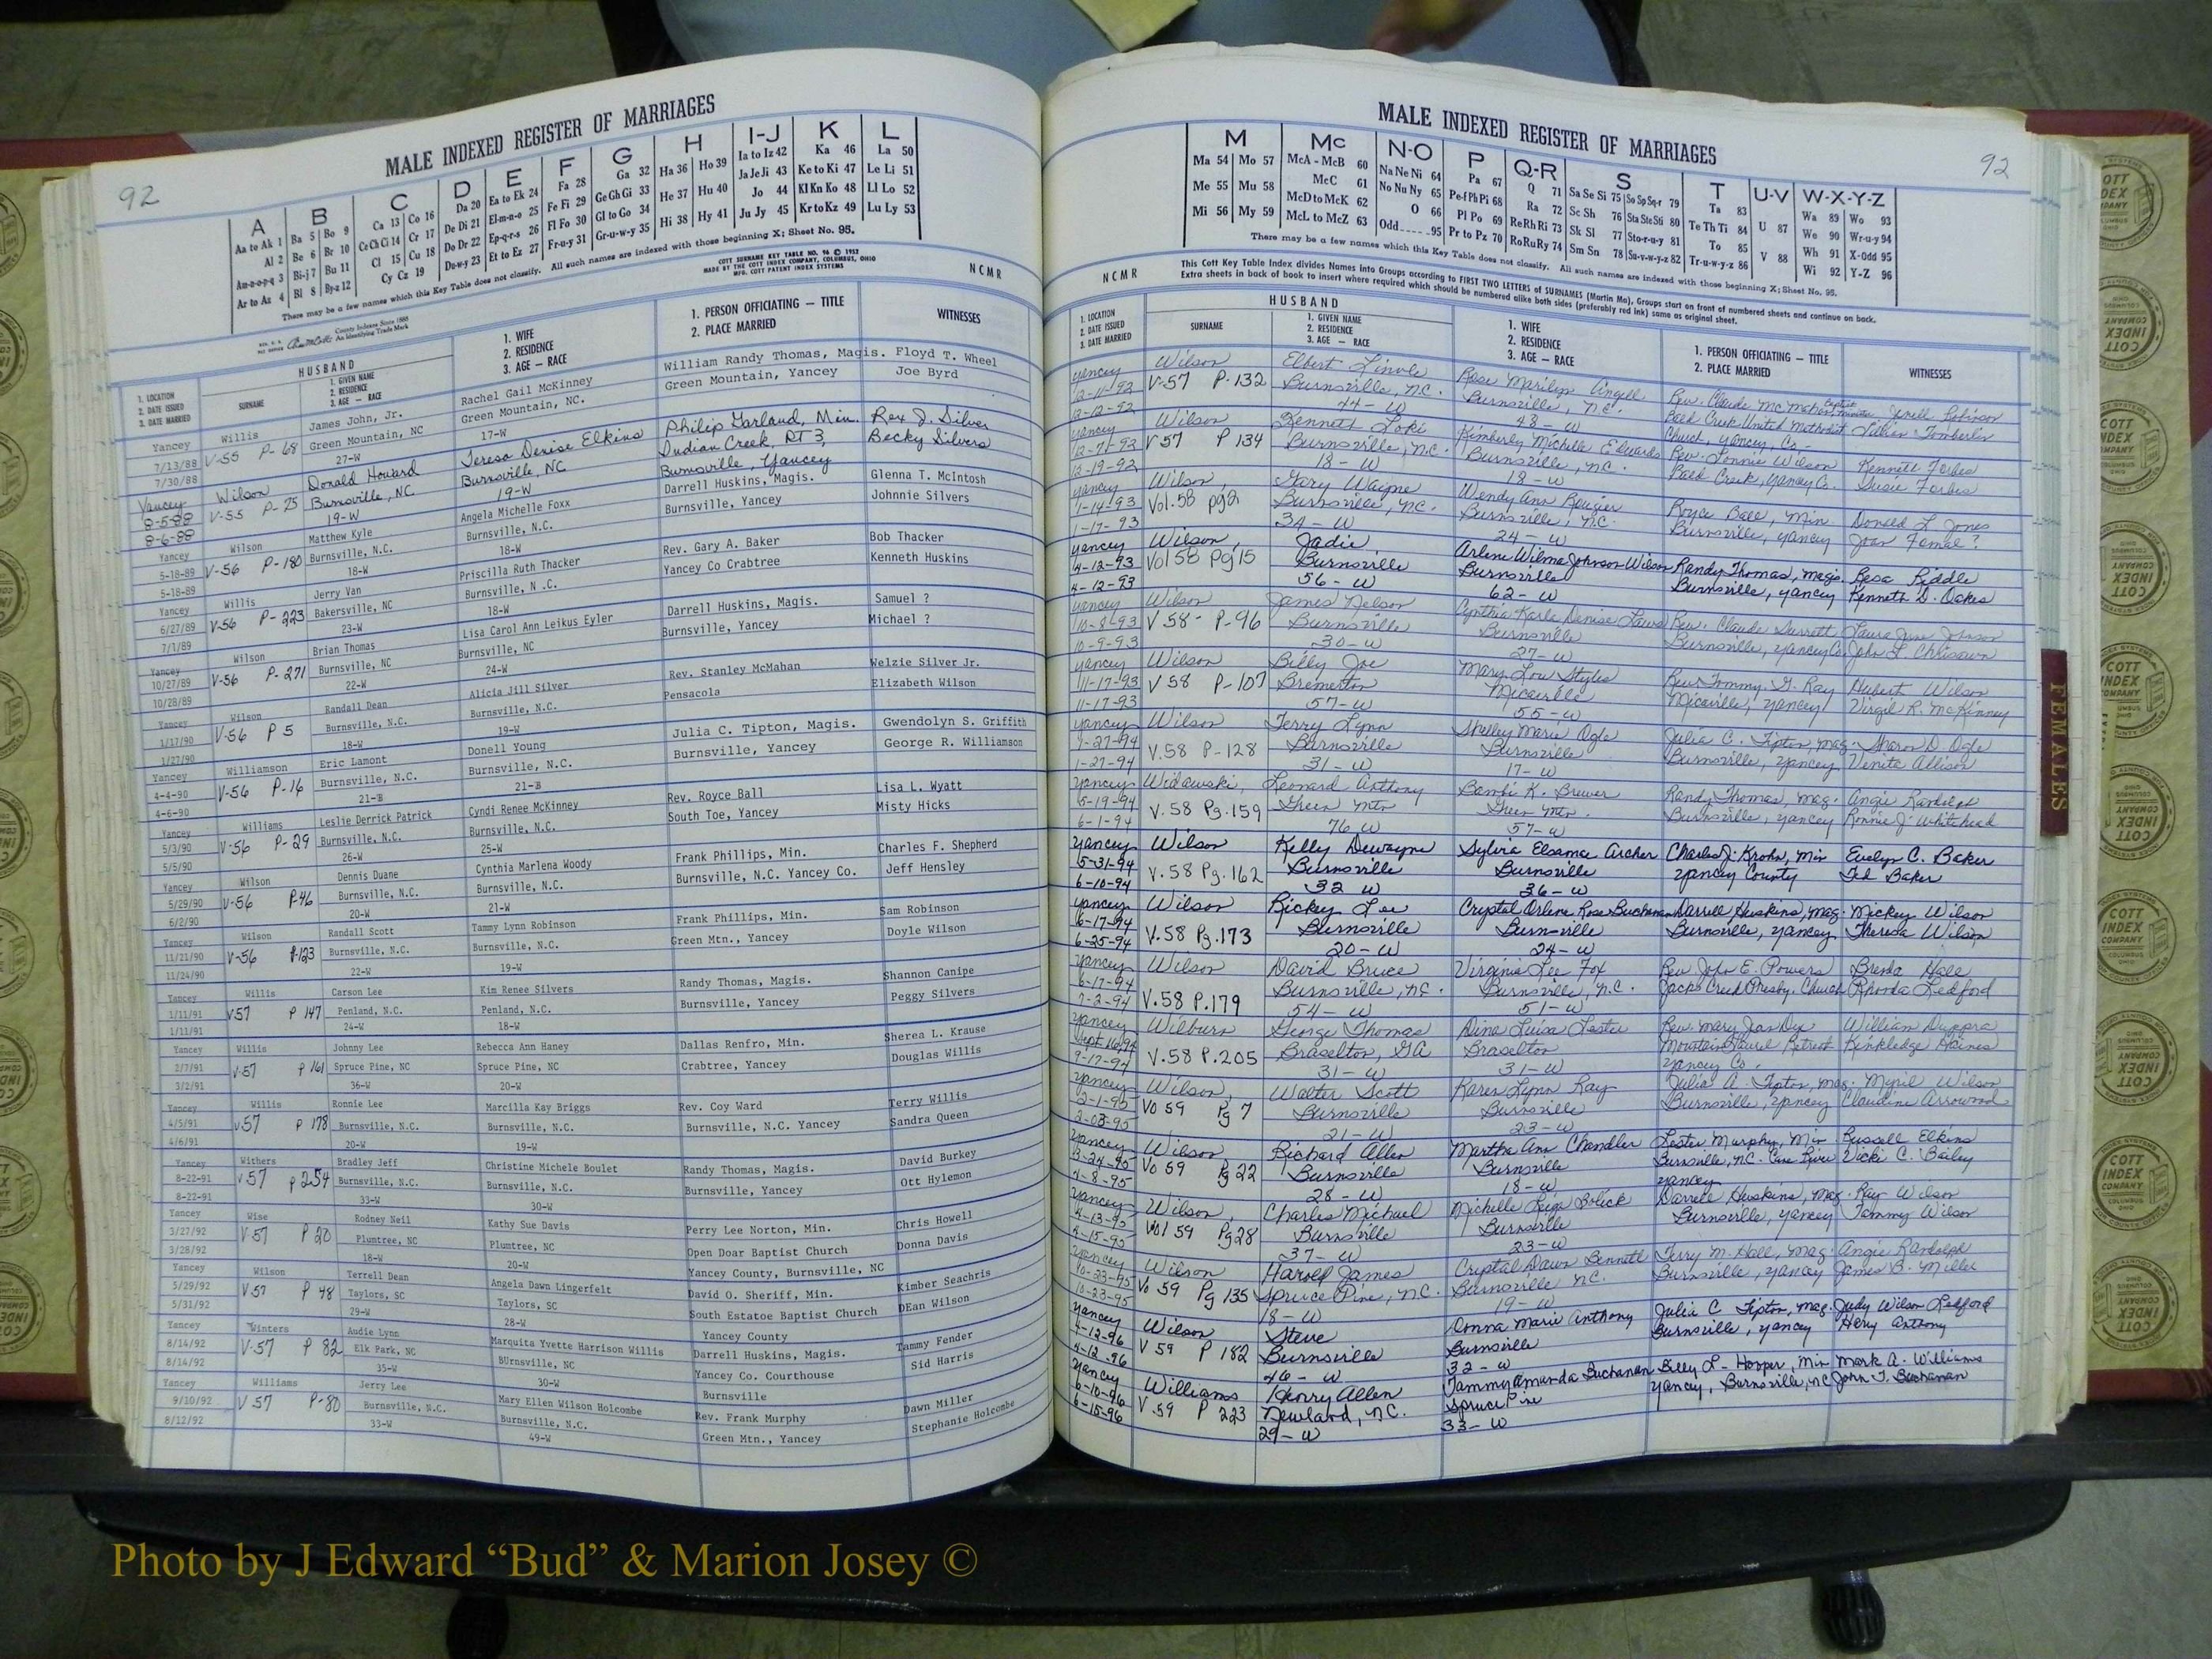 92
MALE INDEXED REGISTER OF MARRIAGES
A B C D E F G H I-J K L
Aa to Ak 1 Ba 5 Bo 9 Ca 13 Co 16 Da 20 Ea to Ek 24 Fa 28 Ga 32 Ha 36 Ho 39 Ia to Iz 42 Ka 46 La 50
Al 2 Be 6 Br 10 Ce Ch Ci 14 Cr 17 De Di 21 El-m-n-o 25 Fe Fi 29 Ge Gh Gi 33 He 37 Hu 40 Ja Je Ji 43 Ke to Ki 47 Le Li 51
Am-n-o-p-q 3 Bi-j 7 Bu 11 Cl 15 Cu 18 Do Dr 22 Ep-q-r-s 26 Fl Fo 30 Gl to Go 34 Hi 38 Hy 41 Jo 44 Kl Kn Ko 48 Ll Lo 52
Ar to Az 4 Bl 8 By-z 12 Cy Cz 19 Du-w-y 23 Et to Ez 27 Fr-u-y 31 Gr-u-w-y 35 Ju Jy 45 Kr to Kz 49 Lu Ly 53
There may be a few names which this Key Table does not classify. All such names are indexed with those beginning X; Sheet No. 95.
COTT SURNAME KEY TABLE NO. 96 © 1952
MADE BY THE COTT INDEX COMPANY, COLUMBUS, OHIO
MFG. COTT PATENT INDEX SYSTEMS
NCMR
County Indexes Since 1888
An Identifying Trade Mark
HUSBAND
1. LOCATION
2. DATE ISSUED
3. DATE MARRIED
SURNAME
1. GIVEN NAME
2. RESIDENCE
3. AGE — RACE
1. WIFE
2. RESIDENCE
3. AGE — RACE
1. PERSON OFFICIATING — TITLE
2. PLACE MARRIED
WITNESSES
Yancey Willis James John, Jr. Rachel Gail McKinney William Randy Thomas, Magis. Floyd T. Wheel
7/13/88 V-55 P-68 Green Mountain, NC Green Mountain, NC. Green Mountain, Yancey Joe Byrd
7/30/88 27-W 17-W
Yancey Wilson Donald Howard Teresa Denise Elkins Philip Garland, Min. Rex J. Silver
8-5-88 V-55 P-75 Burnsville, NC Burnsville, NC Indian Creek, RT 3, Becky Silvers
8-6-88 19-W 19-W Burnsville, Yancey
Yancey Wilson Matthew Kyle Angela Michelle Foxx Darrell Huskins, Magis. Glenna T. McIntosh
5-18-89 V-56 P-180 Burnsville, N.C. Burnsville, N.C. Burnsville, Yancey Johnnie Silvers
5-18-89 18-W 18-W
Yancey Willis Jerry Van Priscilla Ruth Thacker Rev. Gary A. Baker Bob Thacker
6/27/89 V-56 P-223 Bakersville, NC Burnsville, N.C. Yancey Co Crabtree Kenneth Huskins
7/1/89 23-W 18-W
Yancey Wilson Brian Thomas Lisa Carol Ann Leikus Eyler Darrell Huskins, Magis. Samuel ?
10/27/89 V-56 P-271 Burnsville, NC Burnsville, NC Burnsville, Yancey Michael ?
10/28/89 22-W 24-W
Yancey Wilson Randall Dean Alicia Jill Silver Rev. Stanley McMahan Welzie Silver Jr.
1/17/90 V-56 P 5 Burnsville, N.C. Burnsville, N.C. Pensacola Elizabeth Wilson
1/27/90 18-W 19-W
Yancey Williamson Eric Lamont Donell Young Julia C. Tipton, Magis. Gwendolyn S. Griffith
4-4-90 V-56 P-16 Burnsville, N.C. Burnsville, N.C. Burnsville, Yancey George R. Williamson
4-6-90 21-B 21-B
Yancey Williams Leslie Derrick Patrick Cyndi Renee McKinney Rev. Royce Ball Lisa L. Wyatt
5/3/90 V-56 P-29 Burnsville, N.C. Burnsville, N.C. South Toe, Yancey Misty Hicks
5/5/90 26-W 25-W
Yancey Wilson Dennis Duane Cynthia Marlena Woody Frank Phillips, Min. Charles F. Shepherd
5/29/90 V-56 P46 Burnsville, N.C. Burnsville, N.C. Burnsville, N.C. Yancey Co. Jeff Hensley
6/2/90 20-W 21-W
Yancey Wilson Randall Scott Tammy Lynn Robinson Frank Phillips, Min. Sam Robinson
11/21/90 V-56 P-123 Burnsville, N.C. Burnsville, N.C. Green Mtn., Yancey Doyle Wilson
11/24/90 22-W 19-W
Yancey Willis Carson Lee Kim Renee Silvers Randy Thomas, Magis. Shannon Canipe
1/11/91 V-57 P 147 Penland, N.C. Penland, N.C. Burnsville, Yancey Peggy Silvers
1/11/91 24-W 18-W
Yancey Willis Johnny Lee Rebecca Ann Haney Dallas Renfro, Min. Sherea L. Krause
2/7/91 V-57 P 161 Spruce Pine, NC Spruce Pine, NC Crabtree, Yancey Douglas Willis
3/2/91 36-W 20-W
Yancey Willis Ronnie Lee Marcilla Kay Briggs Rev. Coy Ward Terry Willis
4/5/91 V57 P 178 Burnsville, N.C. Burnsville, N.C. Burnsville, N.C. Yancey Sandra Queen
4/6/91 20-W 19-W
Yancey Withers Bradley Jeff Christine Michele Boulet Randy Thomas, Magis. David Burkey
8-22-91 V57 P254 Burnsville, N.C. Burnsville, N.C. Burnsville, Yancey Ott Hylemon
8-22-91 33-W 30-W
Yancey Wise Rodney Neil Kathy Sue Davis Perry Lee Norton, Min. Chris Howell
3/27/92 V57 P 20 Plumtree, NC Plumtree, NC Open Doar Baptist Church Donna Davis
3/28/92 18-W 20-W Yancey County, Burnsville, NC
Yancey Wilson Terrell Dean Angela Dawn Lingerfelt David O. Sheriff, Min. Kimber Seachris
5/29/92 V57 P 48 Taylors, SC Taylors, SC South Estatoe Baptist Church DEan Wilson
5/31/92 29-W 28-W Yancey County
Yancey Winters Audie Lynn Marquita Yvette Harrison Willis Darrell Huskins, Magis. Tammy Fender
8/14/92 V-57 P 82 Elk Park, NC BUrnsville, NC Yancey Co. Courthouse Sid Harris
8/14/92 35-W 30-W Burnsville
Yancey Williams Jerry Lee Mary Ellen Wilson Holcombe Rev. Frank Murphy Dawn Miller
9/10/92 V 57 P-80 Burnsville, N.C. Burnsville, N.C. Green Mtn., Yancey Stephanie Holcombe
8/12/92 33-W 49-W
MALE INDEXED REGISTER OF MARRIAGES
92
M Mc N-O P Q-R S T U-V W-X-Y-Z
Ma 54 Mo 57 McA - McB 60 Na Ne Ni 64 Pa 67 Q 71 Sa Se Si 75 So Sp Sq-r 79 Ta 83 U 87 Wa 89 Wo 93
Me 55 Mu 58 McC 61 No Nu Ny 65 Pe-f Ph Pi 68 Ra 72 Sc Sh 76 Sta Ste Sti 80 Te Th Ti 84 V 88 We 90 Wr-u-y 94
Mi 56 My 59 McD to McK 62 O 66 Pl Po 69 Re Rh Ri 73 Sk Sl 77 Sto-r-u-y 81 To 85 Wh 91 X-Odd 95
McL to McZ 63 Odd 95 Pr to Pz 70 Ro Ru Ry 74 Sm Sn 78 Su-v-w-y-z 82 Tr-u-w-y-z 86 Wi 92 Y-Z 96
There may be a few names which this Key Table does not classify. All such names are indexed with those beginning X; Sheet No. 95.
NCMR
This Cott Key Table Index divides Names into Groups according to FIRST TWO LETTERS of SURNAMES (Martin Ma), Groups start on front of numbered sheets and continue on back.
Extra sheets in back of book to insert where required which should be numbered alike both sides (preferably red ink) same as original sheet.
HUSBAND
1. LOCATION
2. DATE ISSUED
3. DATE MARRIED
SURNAME
1. GIVEN NAME
2. RESIDENCE
3. AGE — RACE
1. WIFE
2. RESIDENCE
3. AGE — RACE
1. PERSON OFFICIATING — TITLE
2. PLACE MARRIED
WITNESSES
Yancey Wilson Elbert Rose Marilyn Angell Rev. Claude McMahan
12-11-92 V-57 P-132 Burnsville, N.C. Burnsville, N.C. United Methodist
12-12-92 44-W 48-W Church, Yancey, Co.
Yancey Wilson Kenneth Loki Kimberly Michelle Edwards Rev. Lonnie Wilson Kenneth Forbes
12-7-92 V57 P 134 Burnsville, N.C. Burnsville, N.C. Creek, Yancey Co. Susie Forbes
12-19-92 18-W 18-W
Yancey Wilson, Gary Wayne Wendy Ann Royce Ball, Min Donald L. Jones
1-14-93 Vol.58 pg2 Burnsville, NC. Burnsville, N.C. Burnsville, Yancey Joan ?
1-17-93 34-W 24-W
Yancey Wilson, Jadie Arlene Wilma Johnson Wilson Randy Thomas, Magis. Rosa Riddle
4-12-93 Vol 58 pg 15 Burnsville Burnsville Burnsville, Yancey Kenneth D. Oakes
4-12-93 56-W 62-W
Yancey Wilson James Nelson Cynthia Karla Denise Laws Rev. Claude Laura Johnson
10-8-93 V 58- P-96 Burnsville Burnsville Burnsville, Yancey Co. John L. Chrisawn
10-9-93 30-W 27-W
Yancey Wilson Billy Joe Mary Lou Styles Rev. Tommy G. Ray Hubert Wilson
11-17-93 V 58 P-107 Bremerton Micaville Micaville, Yancey Virgil R. McKinney
11-17-93 57-W 55-W
Yancey Wilson Terry Lynn Shelley Marie Ogle Julia C. Tipton, Mag. Sharon D. Ogle
1-27-94 V.58 P-128 Burnsville Burnsville Burnsville, Yancey Venita Allison
1-27-94 31-W 17-W
Yancey Widawski, Leonard Anthony Bambi K. Brewer Randy Thomas, Mag. Angie Randolph
5-19-94 V.58 Pg.159 Green Mtn Green Mtn. Burnsville, Yancey Ronnie J. Whitehead
6-1-94 76 W 57-W
Yancey Wilson Kelly Dewayne Sylvia Elsamae Archer Charles J. Krohn, Min Evelyn C. Baker
5-31-94 V.58 Pg.162 Burnsville Burnsville Yancey County Ted Baker
6-10-94 32 W 36-W
Yancey Wilson Rickey Lee Crystal Orlene Rose Buchanan Darrell Huskins, Mag. Mickey Wilson
6-17-94 V.58 Pg.173 Burnsville Burnsville Burnsville, Yancey Theresa Wilson
6-25-94 20-W 24-W
Yancey Wilson David Bruce Virginia Lee Fox Rev. John E. Powers Brenda Hall
6-17-94 V.58 P.179 Burnsville, N.C. Burnsville, N.C. Jacks Creek Presby. Church Rhonda Ledford
7-2-94 54-W 51-W
Yancey Wilburn George Thomas Dina Luisa Lester Rev. Mary Jean Dyx William
Sept 16, 94 V.58 P.205 Braselton, GA Braselton Mountain Laurel Retreat Haines
9-17-94 31-W 31-W Yancey Co.
Yancey Wilson, Walter Scott Karen Lynn Ray Julia A. Tipton, Mag. Wilson
2-1-95 Vo 59 Pg 7 Burnsville Burnsville Burnsville, Yancey Claudine Arrowood
2-03-95 21-W 23-W
Yancey Wilson Richard Allen Martha Ann Chandler Lester Murphy, Min Russell Elkins
3-24-95 Vo 59 Pg 22 Burnsville Burnsville Burnsville, N.C. Cane River Vicki C. Bailey
4-8-95 28-W 18-W Yancey
Yancey Wilson, Charles Michael Michelle Bolick Darrell Huskins, Mag. Ray Wilson
4-13-95 Vol 59 Pg 28 Burnsville Burnsville Burnsville, Yancey Tammy Wilson
4-15-95 37-W 23-W
Yancey Wilson Harold James Crystal Dawn Bennett Terry M. Hall, Mag. Angie Randolph
10-23-95 Vo 59 Pg 135 Spruce Pine, N.C. Burnsville NC. Burnsville, Yancey James B. Miller
10-23-95 18-W 19-W
Yancey Wilson Steve Donna Marie Anthony Julia C Tipton, Mag. Judy Wilson Ledford
4-12-96 V 59 P 182 Burnsville Burnsville Burnsville, Yancey Henry Anthony
4-12-96 46-W 32-W
Yancey Williams Henry Allen Tammy Amanda Buchanan Billy L. Hooper, Min Mark A. Williams
6-10-96 V.59 P 223 Newland, N.C. Spruce Pine Yancy, Burnsville, NC John T. Buchanan
6-15-96 29-W 33-W
FEMALES
COTT INDEX COMPANY
Photo by J Edward “Bud” & Marion Josey ©